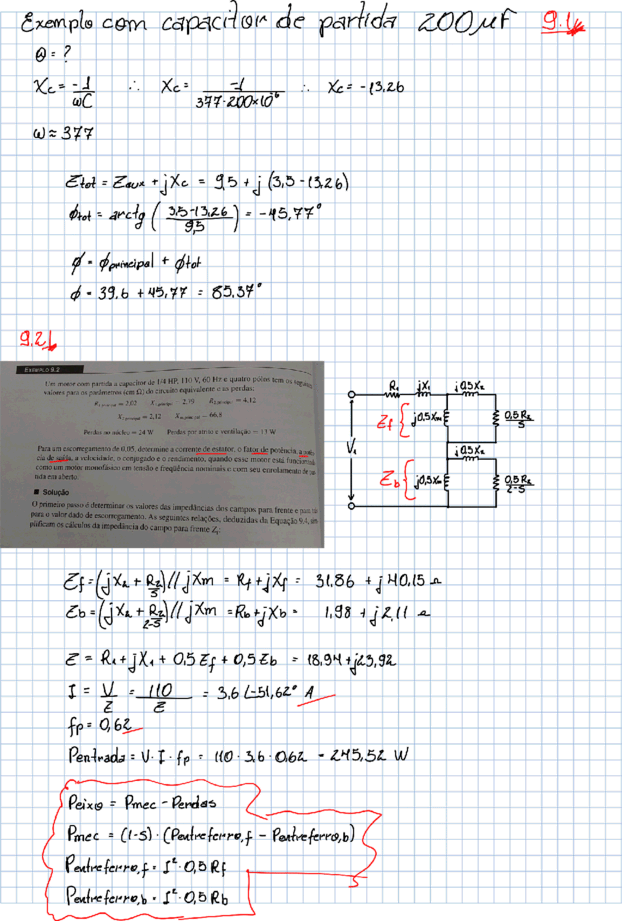 Exemplo com capacitor de partida 200µF 9.1
ω = ?
Xc = -1/ωC ∴ Xc = -1/377·200×10⁻⁶ ∴ Xc = -13,26
ω ≈ 377
Ztot = Zaux + jXc = 9,5 + j(3,5-13,26)
Φtot = arctg (3,5-13,26/9,5) = -45,77°
Φ = Φprincipal + Φtot
Φ = 39,6 + 45,77 = 85,37°
9.2
EXEMPLO 9.2
Um motor com partida a capacitor de 1/4 HP, 110 V, 60 Hz e quatro pólos tem os seguintes
valores para os parâmetros (em Ω) do circuito equivalente e as perdas:
R1,principal = 2,02 X1,principal = 2,79 R2,principal = 4,12
X2,principal = 2,12 Xm,principal = 66,8
Perdas no núcleo = 24 W Perdas por atrito e ventilação = 13 W
Para um escorregamento de 0,05, determine a corrente de estator, o fator de potência, a potên-
cia de saída, a velocidade, o conjugado e o rendimento, quando esse motor está funcionando
como um motor monofásico em tensão e freqüência nominais e com seu enrolamento de par-
tida em aberto.
■ Solução
O primeiro passo é determinar os valores das impedâncias dos campos para frente e para trás
para o valor dado de escorregamento. As seguintes relações, deduzidas da Equação 9.4, sim-
plificam os cálculos da impedância do campo para frente Zf:
R1 jX1 j0,5X2
Zf { j0,5Xm 0,5R2/S
V1
j0,5X2
Zb { j0,5Xm 0,5R2/2-S
Zf = (jX2 + R2/S) // jXm = Rf + jXf = 31,86 + j40,15 Ω
Zb = (jX2 + R2/2-S) // jXm = Rb + jXb = 1,98 + j2,11 Ω
Z = R1 + jX1 + 0,5 Zf + 0,5 Zb = 18,94 + j23,92
I = V/Z = 110/Z = 3,6 ∠-51,62° A
fp = 0,62
Pentrada = V·I·fp = 110·3,6·0,62 = 245,52 W
Peixo = Pmec - Perdas
Pmec = (1-S)·(Pentreferro,f - Pentreferro,b)
Pentreferro,f = I²·0,5 Rf
Pentreferro,b = I²·0,5 Rb